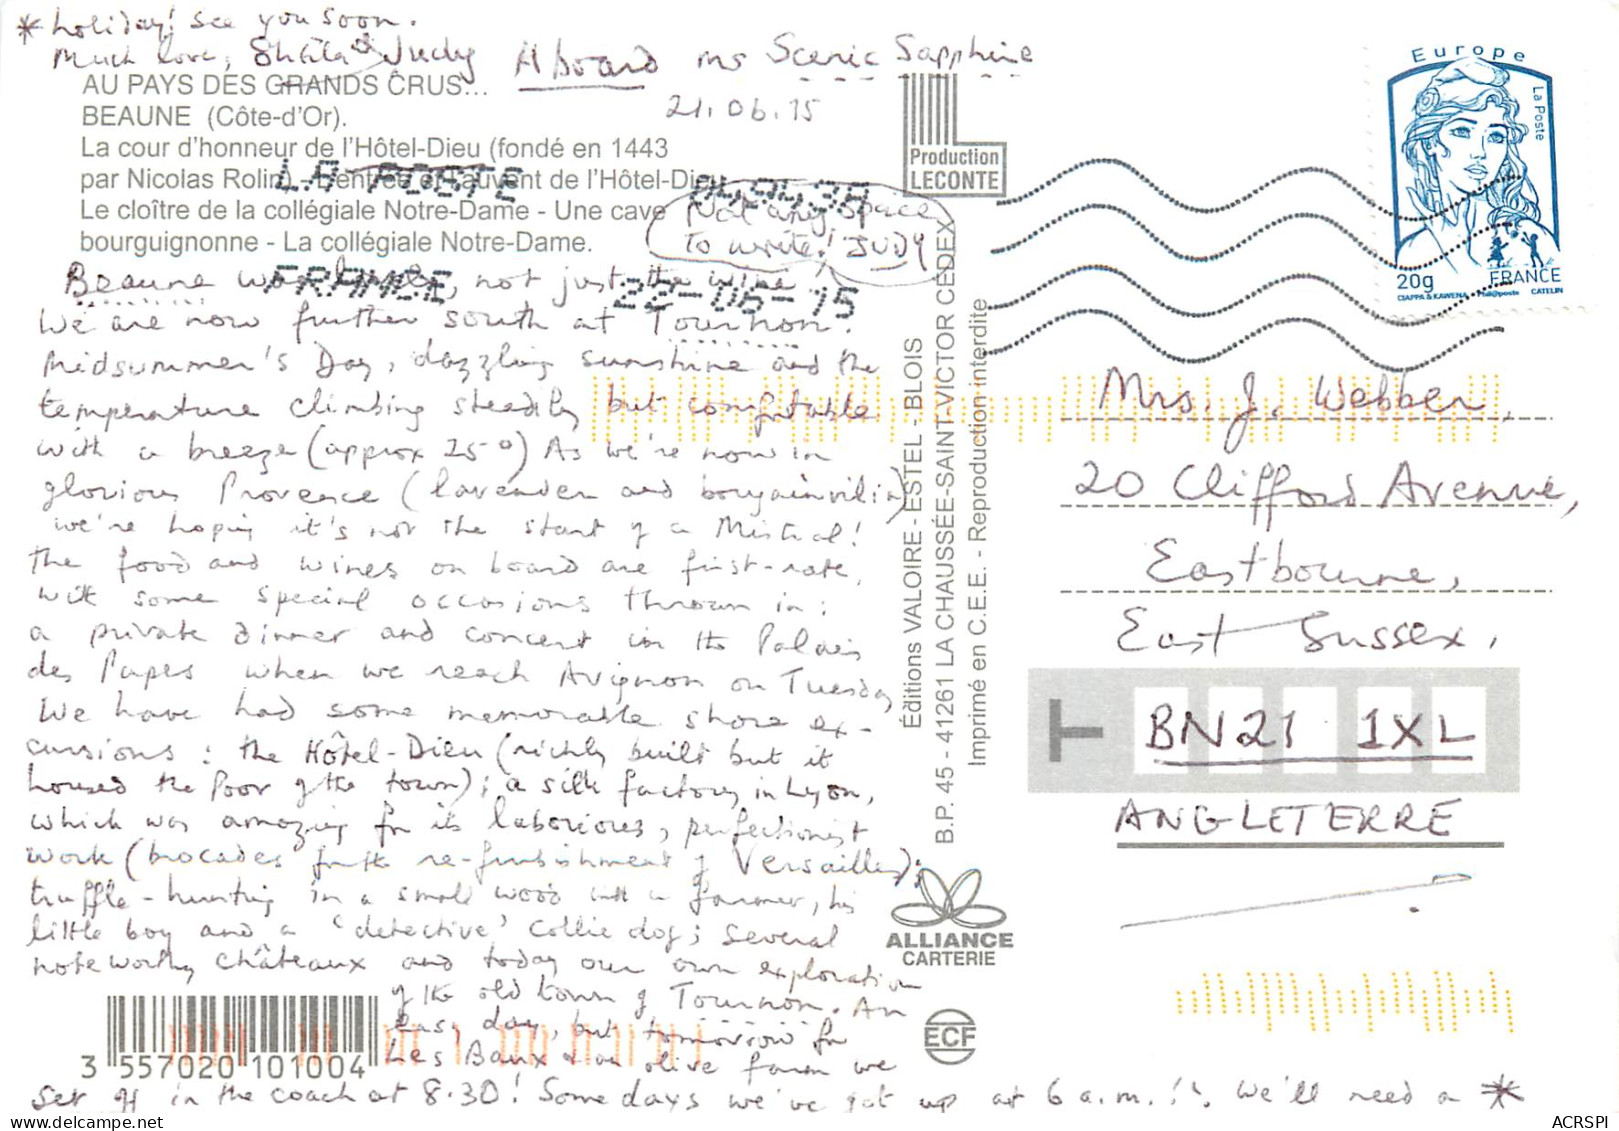 * holiday! See you soon.
Much love, Sheila & Judy
Aboard ms Scenic Sapphire
21.06.15
AU PAYS DES GRANDS CRUS...
BEAUNE (Côte-d'Or).
La cour d'honneur de l'Hôtel-Dieu (fondé en 1443
par Nicolas Rolin) - L'entrée et l'auvent de l'Hôtel-Dieu
Le cloître de la collégiale Notre-Dame - Une cave
bourguignonne - La collégiale Notre-Dame.
LA POSTE
FRANCE
22-06-15
Not any space
to write! JUDY
Production
LECONTE
Beaune was lovely, not just the wine
We are now further south at Tournon.
Midsummer's Day, dazzling sunshine and the
temperature climbing steadily but comfortable
with a breeze (approx 25°) As we're now in
glorious Provence (lavender and bougainvilia)
we're hoping it's not the start of a Mistral!
The food and wines on board are first-rate,
with some special occasions thrown in:
a private dinner and concert in the Palais
des Papes when we reach Avignon on Tuesday
We have had some memorable shore ex-
cursions: the Hôtel-Dieu (richly built but it
housed the poor of the town); a silk factory in Lyon,
which was amazing for its laborious, perfectionist
work (brocades for the re-furbishment of Versailles);
truffle-hunting in a small wood with a farmer, his
little boy and a 'detective' collie dog; several
noteworthy châteaux and today our own exploration
of the old town of Tournon. An
easy day, but tomorrow for
Les Baux & an olive farm we
set off in the coach at 8.30! Some days we've got up at 6 a.m.!! We'll need a *
3 557020 101004
Éditions VALOIRE - ESTEL - BLOIS
B.P. 45 - 41261 LA CHAUSSÉE-SAINT-VICTOR CEDEX
Imprimé en C.E.E. - Reproduction interdite
ALLIANCE
CARTERIE
ECF
Europe
La Poste
20g
FRANCE
CIAPPA & KAWENA Phil@poste CATELIN
Mrs. J. Webber,
20 Clifford Avenue,
Eastbourne,
East Sussex,
BN21 1XL
ANGLETERRE
ACRSPI